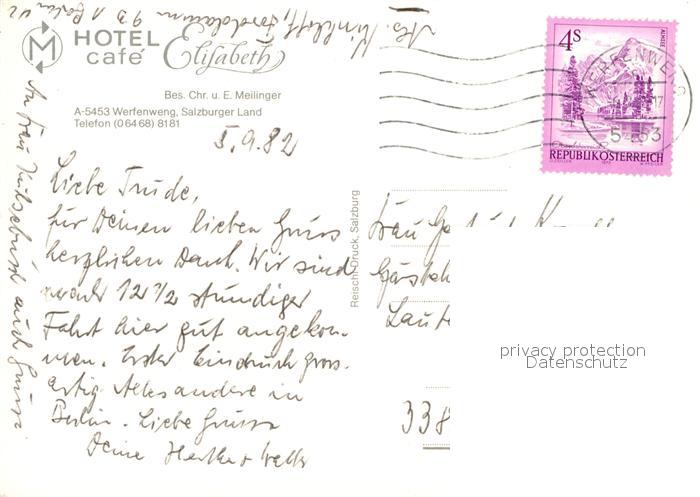 HOTEL
café Elisabeth
Bes. Chr. u. E. Meilinger
A-5453 Werfenweng, Salzburger Land
Telefon (06468) 8181
5.9.82
Liebe Trude,
für Deinen lieben Gruss
herzlichen Dank. Wir sind
nach 12 1/2 stündiger
Fahrt hier gut angekom-
men. Erster Eindruck gross-
artig. Alles andere in
Berlin. Liebe Grüsse
Deine
An Frau auch Grüsse
Reischl-Druck, Salzburg
4S
ALMSEE
REPUBLIK ÖSTERREICH
WERFENWENG
5453
Frau
Laut
338
privacy protection
Datenschutz